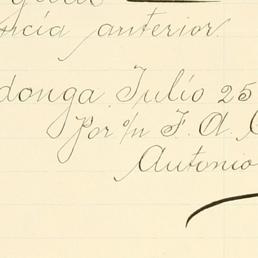 ncia anterior
donga Julio 25
Por o/n F. A. C
Antonio